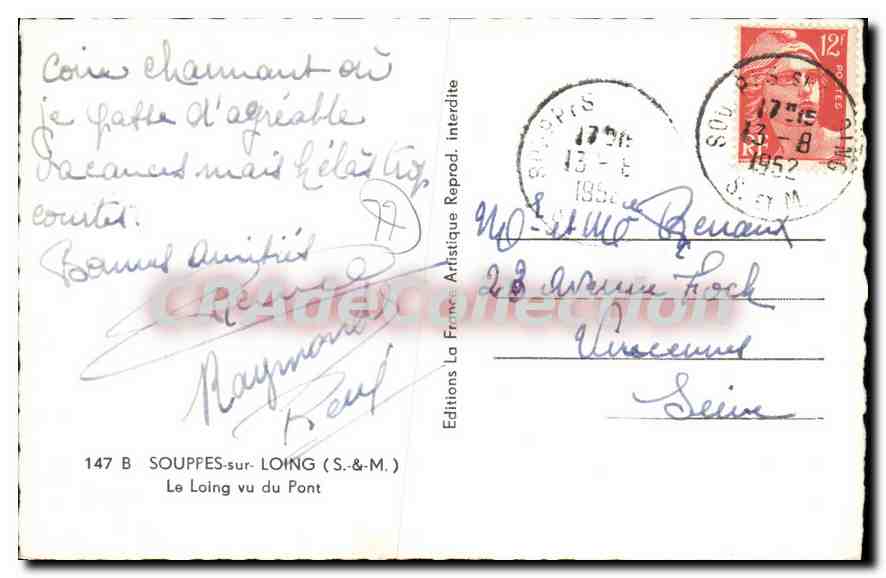 coin charmant où
je passe d'agréable
vacances mais hélas trop
courtes.
Bonnes amitiés
77
Raymonde
René
147 B SOUPPES-sur-LOING (S.-&-M.)
Le Loing vu du Pont
Editions La France Artistique Reprod. interdite
SOUPPES
17H15
13-8
1952
SOUPPES SUR LOING
17H15
13-8
1952
S. ET M
12F
POSTES
RF
Mr et Mme Renaux
23 Avenue Foch
Vincennes
Seine
CPAdeCollection